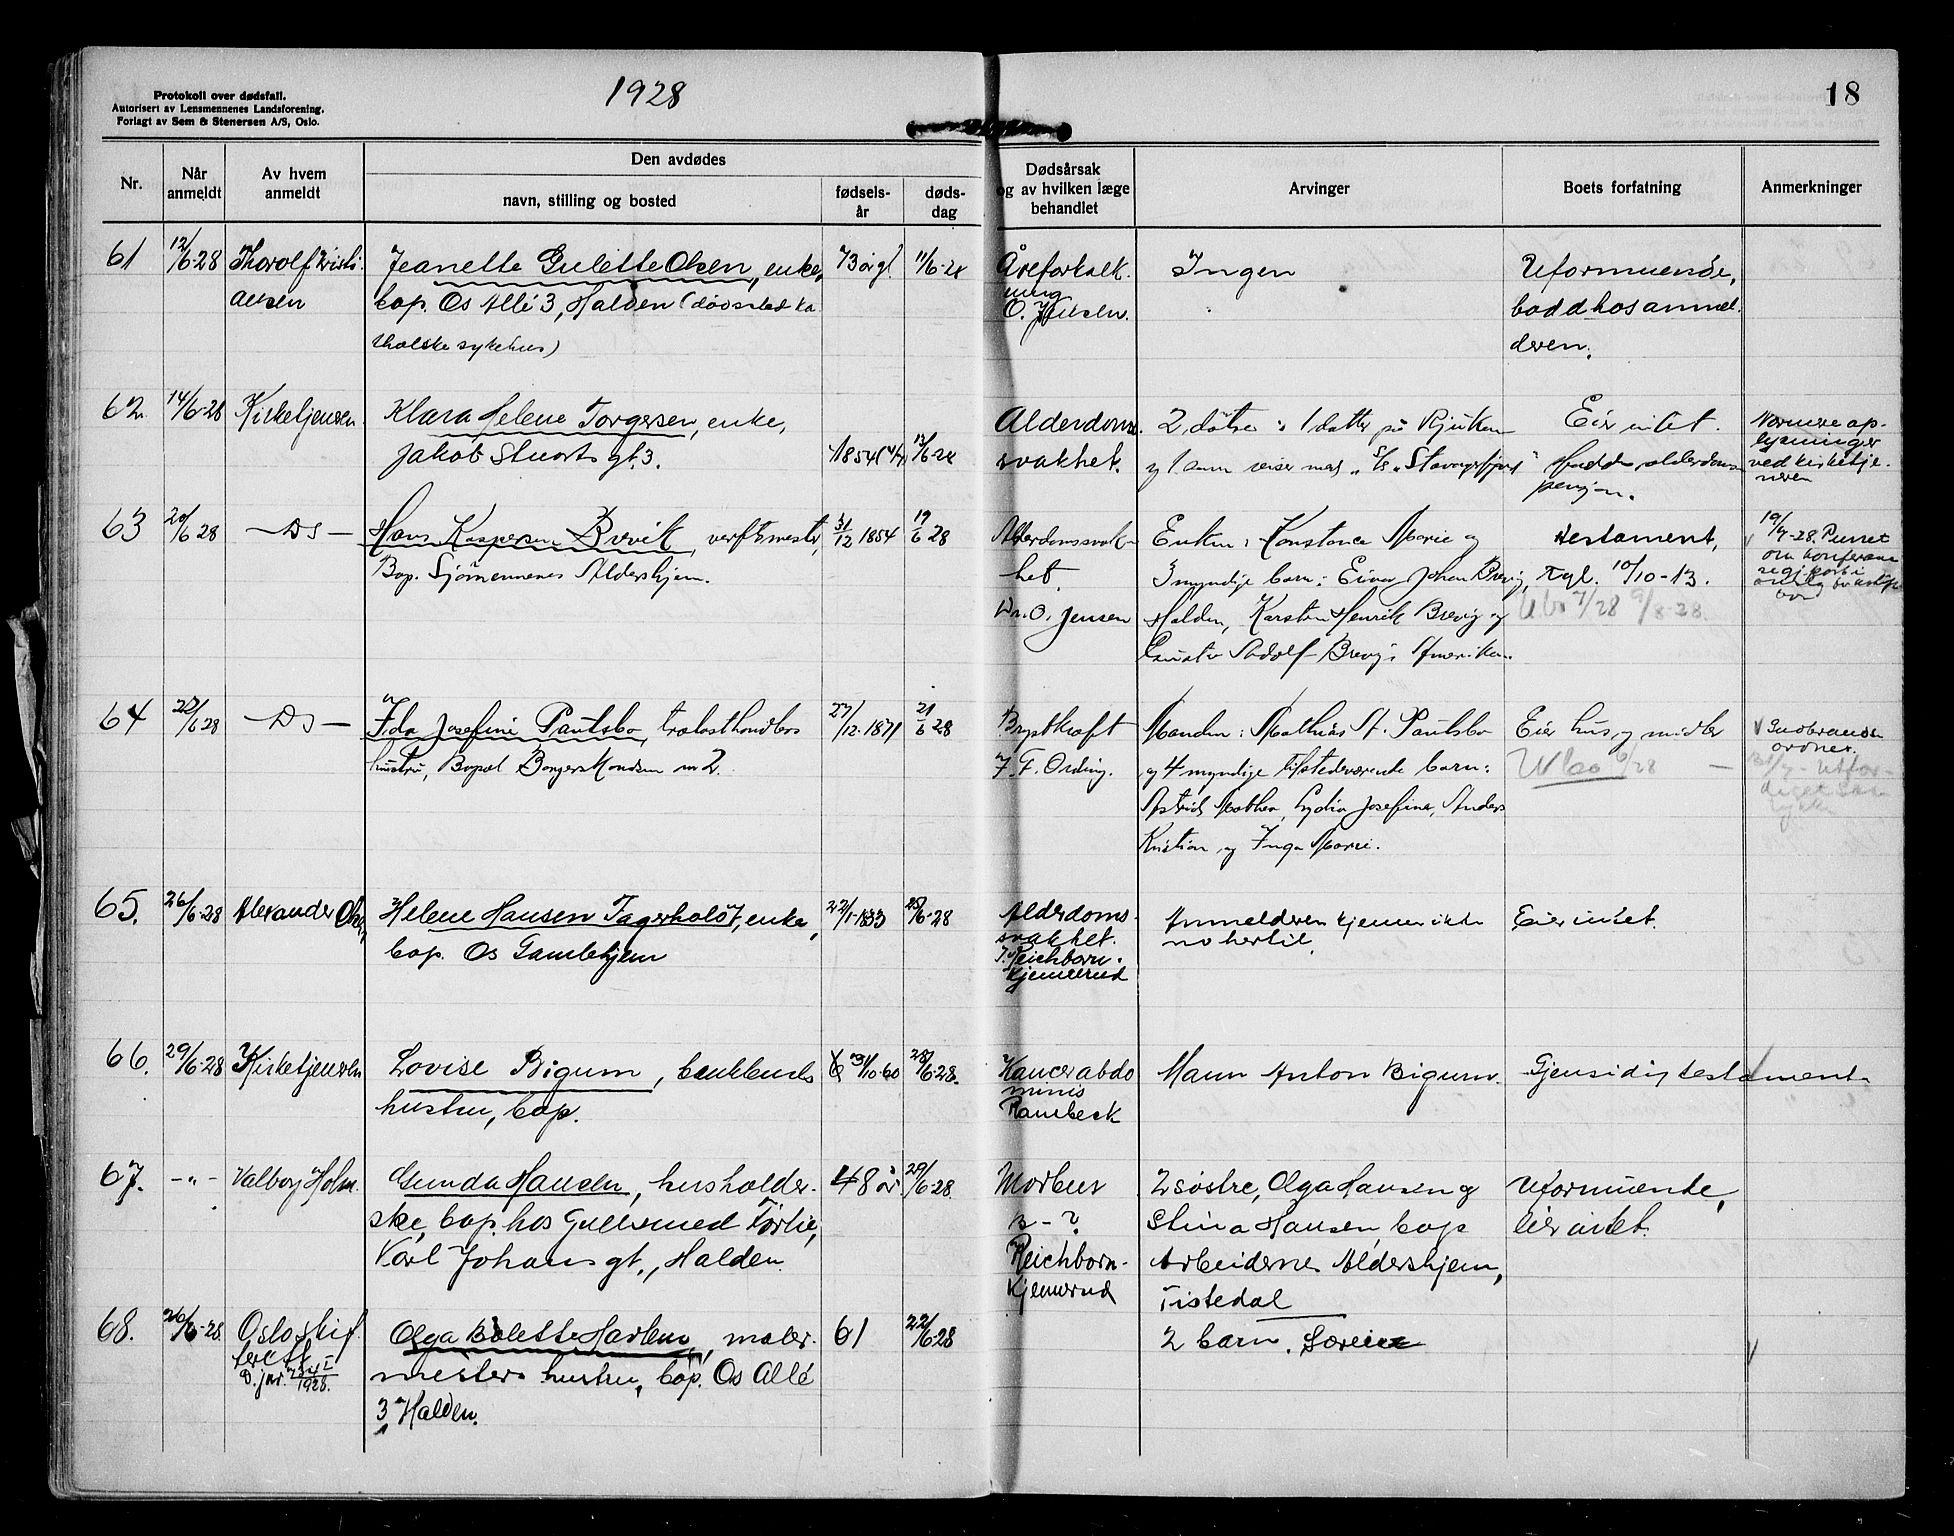 Protokoll over dødsfall.
Autorisert av Lensmennenes Landsforening.
Forlagt av Sem & Stenersen A/S, Oslo.
1928
18
Nr.
Når anmeldt
Av hvem anmeldt
Den avdødes
navn, stilling og bosted
fødsels-år
døds-dag
Dødsårsak og av hvilken læge behandlet
Arvinger
Boets forfatning
Anmerkninger
61
12/6-28
Thorolf Kristi
ansen
Jeanette Gulette Olsen, enke,
bop. Os Allé 3, Halden (dødssted ka
tholske sykehus)
73 år gl.
11/6-28
Åreforkalk-
ning
Ingen
Uformuende,
bodd hos anmel-
deren.
62.
14/6-28
Kirketjeneren
Klara Helene Torgersen, enke,
Jakob Stuarts gt. 3.
1854
13/6-28
Alderdoms-
svakhet.
2 døtre : 1 datter på Rjukan
Eier intet.
Hadde alderdoms
pensjon.
Nærmere op-
lysninger
ved kirketje-
neren
63
20/6 28
- Ds -
Hans Kaspersen Brevik, verftsmester,
Bop. Sjømennenes Aldershjem.
31/12 1854
19/6 28
Alderdomssvak-
het.
Dr. O. Jensen
Enken: Konstance Marie og
3 myndige barn: Einar Johan Brevig,
Halden, Karsten Henrik Brevig og
Gustav Adolf Brevig i Amerika.
Testament,
tgl. 10/10-13.
64
22/6 28
- Ds -
Ida Josefine Paulsbo, trælasthandlers
hustru, Bopæl Borgermandsen nr 2.
27/12. 1871
21/6 28
Brystkræft
J. F. Ording.
Manden: Mathias A. Paulsbo
og 4 myndige tilstedeværende barn:
Astrid Mathea, Lydia Josefine, Anders
Kristian og Inga Marie.
Eier hus og midler
65.
26/6-28
Alexander Olsen
Helene Hansen Fagerholdt, enke,
bop. Os Gamlehjem
22/1-1833
25/6-28
Alderdoms-
svakhet.
Reichborn-
Kjennerud
Anmelderen kjenner ikke
no hertil.
Eier intet.
66.
29/6-28
Kirketjeneren
Lovise Bigum, bundtmakers
hustru, bop.
31/10-60
28/6-28.
Kancer abdo
minis
Rambeck
Mann Anton Bigum.
Gjensidig testament
67.
- " -
Valborg Holm.
Gunda Hansen, husholder-
ske, bop. hos Gullsmed Førlie,
Karl Johans gt., Halden.
48 år
29/6-28.
Morbus
B - ?
Reichborn-
Kjennerud
2 søstre, Olga Hansen og
Stina Hansen bop
Arbeidernes Aldershjem,
Tistedal
Uformuende,
eier intet.
68.
26/6-28.
Oslo skif
terett
D. jnr.
1928.
Olga Bolette Harlem, maler-
mesters hustru, bop. Os Allé
3 Halden.
61
22/6-28
2 barn.